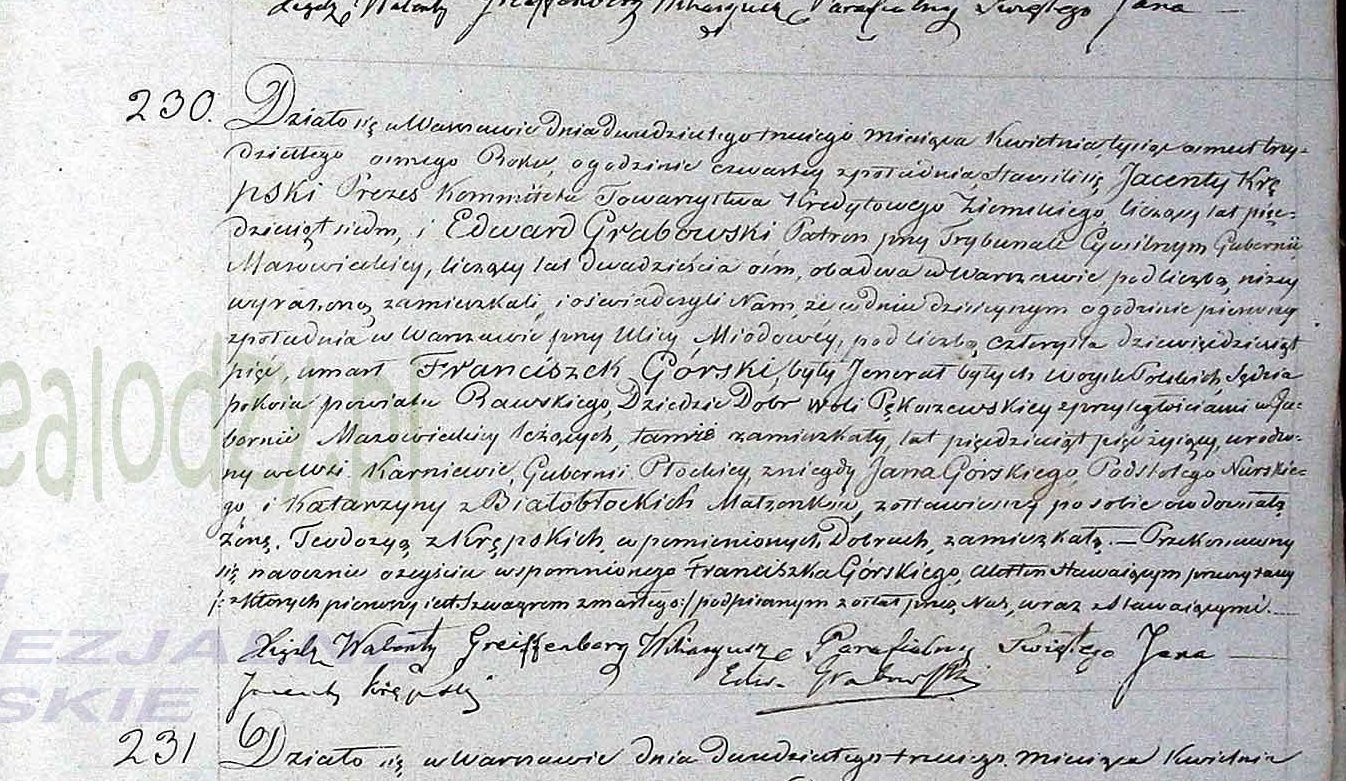 Xiądz Walenty Greiffenberg Wikaryusz Parafialny Świętego Jana
230. Działo się w Warszawie dnia dwudziestego trzeciego miesiąca Kwietnia, tysiąc ośmset trzy-
dziestego ośmego Roku, o godzinie czwartey z południa, stawili się Jacenty Krę
pski Prezes Kommitetu Towarzystwa Kredytowego Ziemskiego, liczący lat pięć-
dziesiąt siedm, i Edward Grabowski Patron przy Trybunale Cywilnym Gubernii
Mazowieckiey, liczący lat dwadzieścia ośm, obadwa w Warszawie pod liczbą niżey
wyrażoną zamieszkali, i oświadczyli Nam, że w dniu dzisieyszym o godzinie pierwszey
z południa w Warszawie przy Ulicy Miodowéy, pod liczbą czterysta dziewięćdziesiąt
pięć, umarł Franciszek Górski, były Jenerał byłych woysk Polskich, Sędzia
pokoiu powiatu Rawskiego, Dziedzic Dobr Woli Pękoszewskiey z przyległościami w Gu-
bernii Mazowieckiey leżących, tamże zamieszkały, lat pięćdziesiąt pięć żyiący, urodzo-
ny we Wsi Karniewie, Gubernii Płockiey, z niegdy Jana Górskiego, Podstolego Nurskie-
go i Katarzyny z Białobłockich Małżonków, zostawiwszy po sobie owdowiałą
żonę. Teodozyą z Krępskich, w pomienionych Dobrach, zamieszkałą. — Przekonawszy
się naocznie o zeyściu wspomnionego Franciszka Górskiego, Akt ten stawaiącym przeczytany
/: z których pierwszy iest Szwagrem zmarłego :/ podpisanym został przez Nas, wraz z stawaiącymi. —
Xiądz Walenty Greiffenberg Wikaryusz Parafialny Świętego Jana —
Jacenty Krępski Edw. Grabowski
231 Działo się w Warszawie dnia dwudziestego trzeciego miesiąca Kwietnia
ealodzi.pl
EZJALNE
SKIE